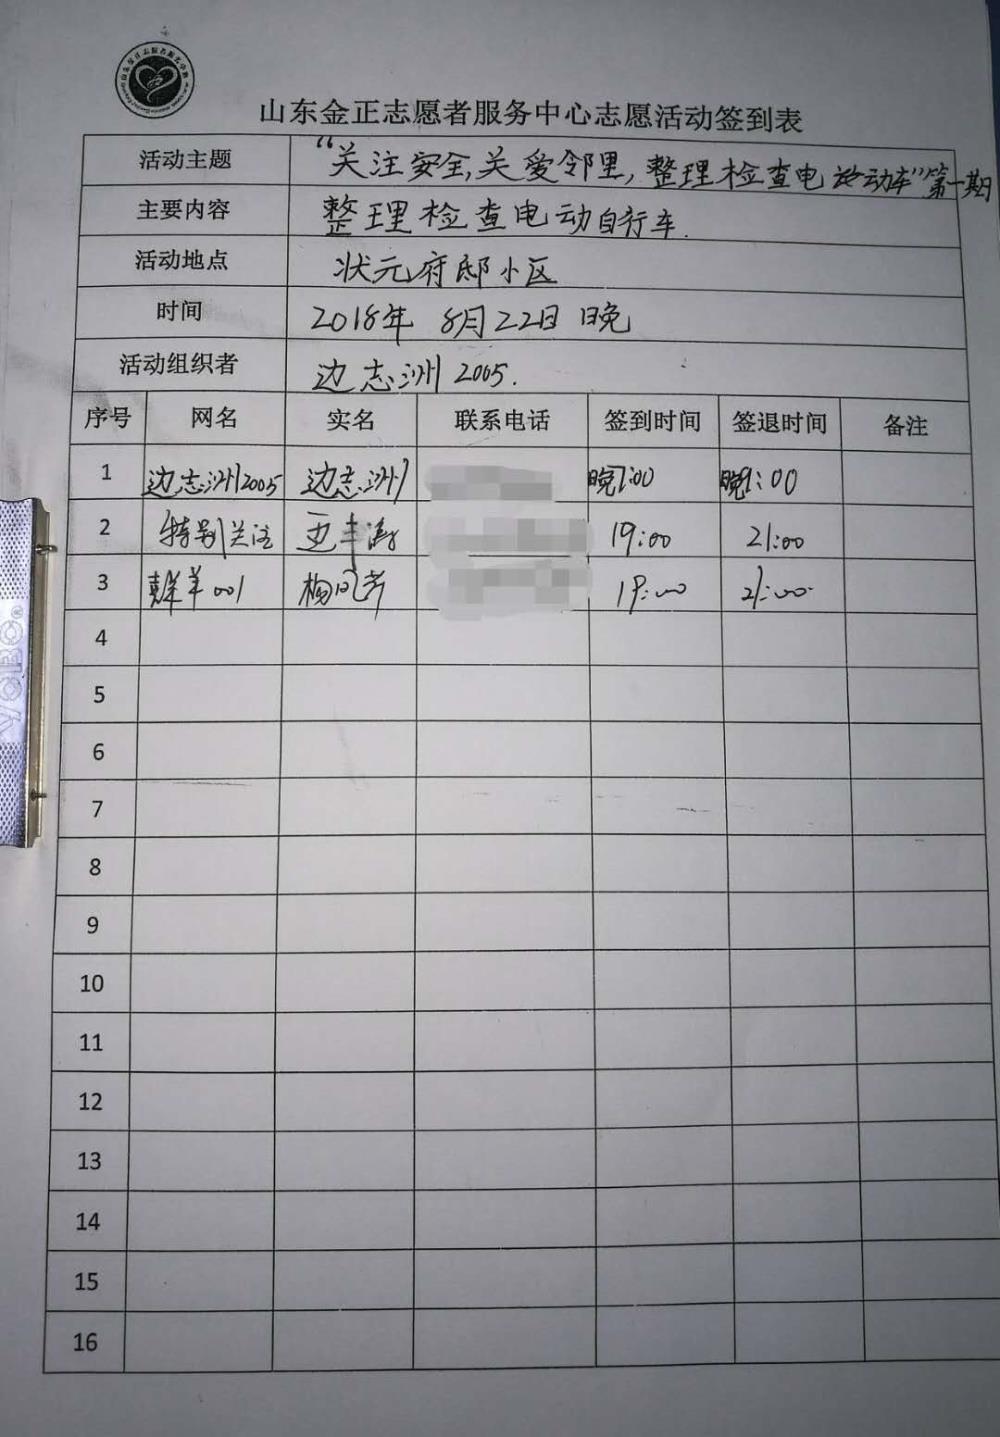 山东金正志愿者服务中心志愿活动签到表
活动主题 “关注安全,关爱邻里,整理检查电动车”第一期
主要内容 整理检查电动自行车.
活动地点 状元府邸小区
时间 2018年 8月22日 晚
活动组织者 边志洲 2005.
序号 网名 实名 联系电话 签到时间 签退时间 备注
1 边志洲2005 边志洲 晚7:00 晚9:00
2 特别关注 19:00 21:00
3 001 19:00 21:00
4
5
6
7
8
9
10
11
12
13
14
15
16
YOBO